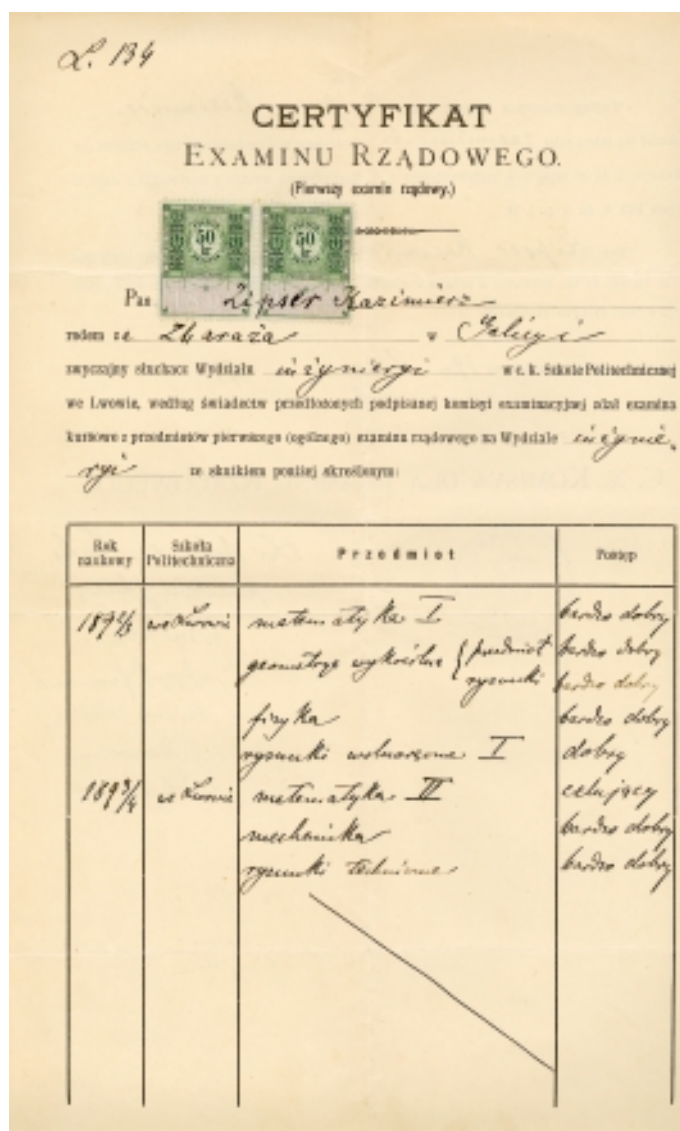 L. 134
CERTYFIKAT
EXAMINU RZĄDOWEGO.
(Pierwszy examin rządowy.)
50 50
Pan Zipser Kazimierz
rodem ze Zbaraża w Galicyi
zwyczajny słuchacz Wydziału inżynieryi w c. k. Szkole Politechnicznej
we Lwowie, według świadectw przedłożonych podpisanej komisyi examinacyjnej zdał examina
kursowe z przedmiotów pierwszego (ogólnego) examinu rządowego na Wydziale inżynie-
ryi ze skutkiem poniżej określonym:
Rok naukowy Szkoła Politechniczna Przedmiot Postęp
1892/3 we Lwowie matematyka I bardzo dobry
geometrya wykreślna { przedmiot bardzo dobry
rysunki bardzo dobry
fizyka bardzo dobry
rysunki wolnoręczne I dobry
1893/4 we Lwowie matematyka II celujący
mechanika bardzo dobry
rysunki techniczne bardzo dobry